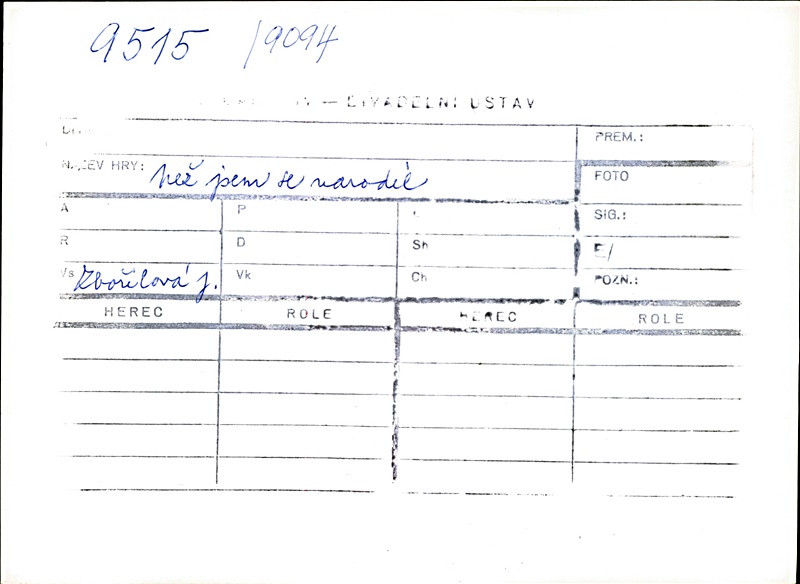 9515 /9094
— DIVADELNÍ ÚSTAV
PREM.:
NÁZEV HRY: než jsem se narodil
FOTO
A P SIG.:
R D Sh E/
Vs Zbořilová J. Vk Ch POZN.:
HEREC ROLE HEREC ROLE